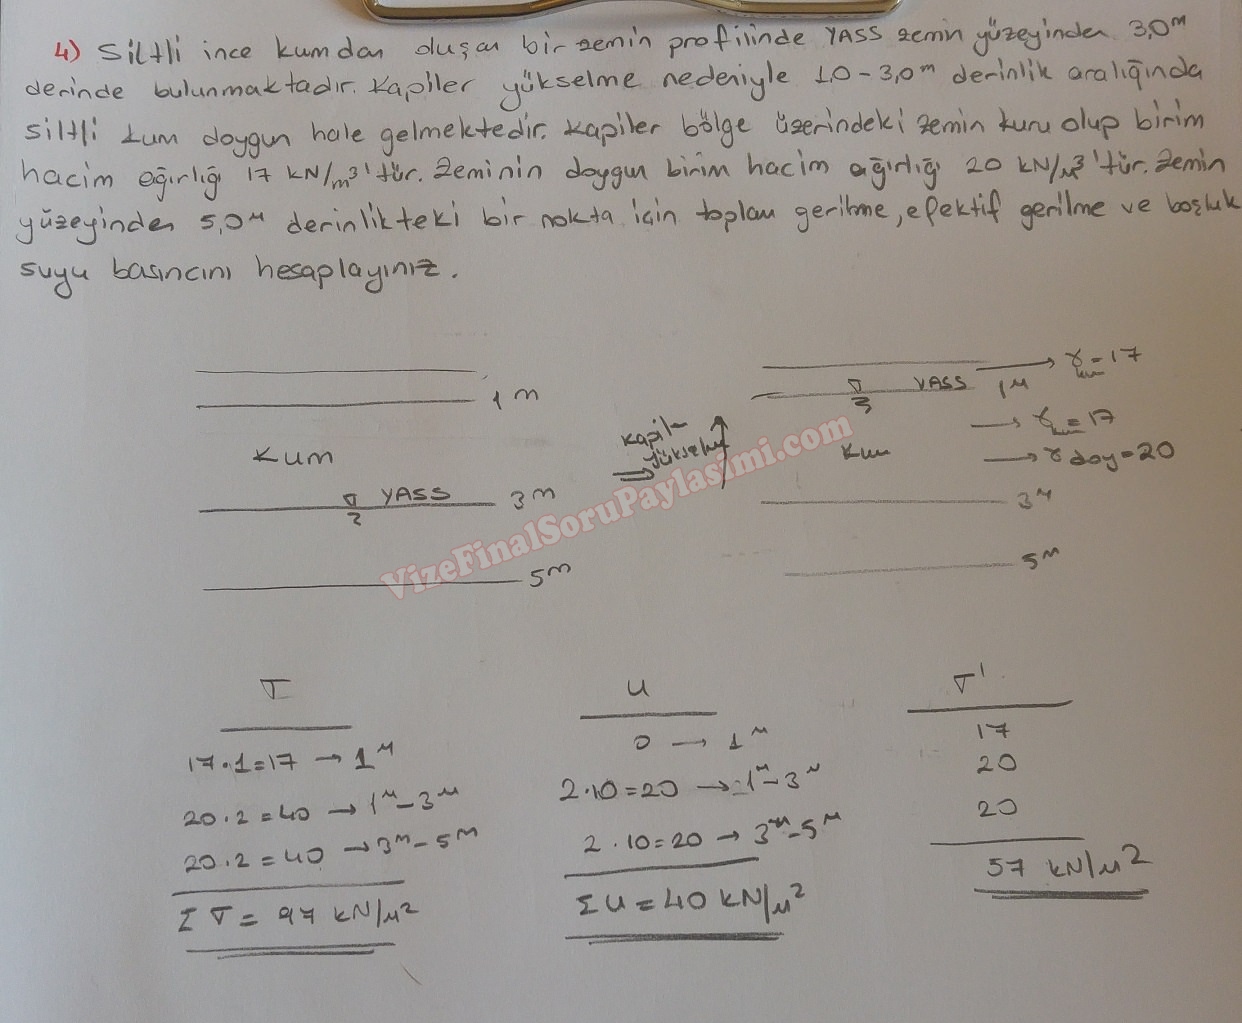 4) Siltli ince kumdan oluşan bir zemin profilinde YASS zemin yüzeyinden 3,0 m
derinde bulunmaktadır. Kapiler yükselme nedeniyle 1,0 - 3,0 m derinlik aralığında
siltli kum doygun hale gelmektedir. Kapiler bölge üzerindeki zemin kuru olup birim
hacim ağırlığı 17 kN/m³'tür. Zeminin doygun birim hacim ağırlığı 20 kN/m³'tür. Zemin
yüzeyinden 5,0 m derinlikteki bir nokta için toplam gerilme, efektif gerilme ve boşluk
suyu basıncını hesaplayınız.
1 m
Kum
YASS 3 m
5 m
kapiler
yükselme
YASS 1 m → γkum = 17
→ γkum = 17
Kum → γdoy = 20
3 m
5 m
VizeFinalSoruPaylasimi.com
σ
17.1 = 17 → 1 m
20.2 = 40 → 1 m - 3 m
20.2 = 40 → 3 m - 5 m
Σσ = 97 kN/m²
u
0 → 1 m
2.10 = 20 → 1 m - 3 m
2.10 = 20 → 3 m - 5 m
Σu = 40 kN/m²
σ'
17
20
20
57 kN/m²